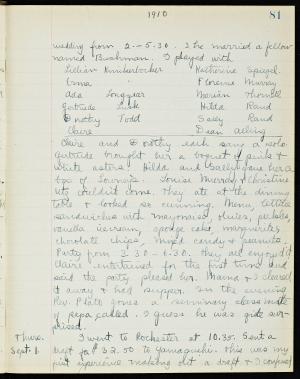 1910 81
wedding from 2 - 5.30. She married a fellow
named Bushman. I played with
Lillian Knickerbocker Katherine Spiegel
Erma " Florence Murray
Ada Longyear Marian
Gertrude Hilda Rand
Dorothy Todd Sally Rand
Claire Dean alling
Claire and Dorothy each sang a solo.
Gertrude brought her a boquet of pinks &
white asters. Hilda and Sally gave her a
box of Louise Murray & Christine
couldn't come. They ate at the dining
table & looked so cunning. Menu, lettuce
sandwiches with mayonaise, olives, pickles,
vanilla icecream, sponge cake, marguerites
chocolate chips, mixed candy & peanuts.
Party from 3.30 - 6.30. They all enjoyed it
Claire entertained for the first time and
said the party pleased her. Mama & I cleared
away & had supper. In the evening
Rev. Plato Jones a seminary classmate
of papa called. I guess he was quite sur-
prised.
Thurs. I went to Rochester at 10.35. Sent a
Sept. 1. draft for $2.50 to Yamaguchi. This was my
first experience making out a draft & I confess